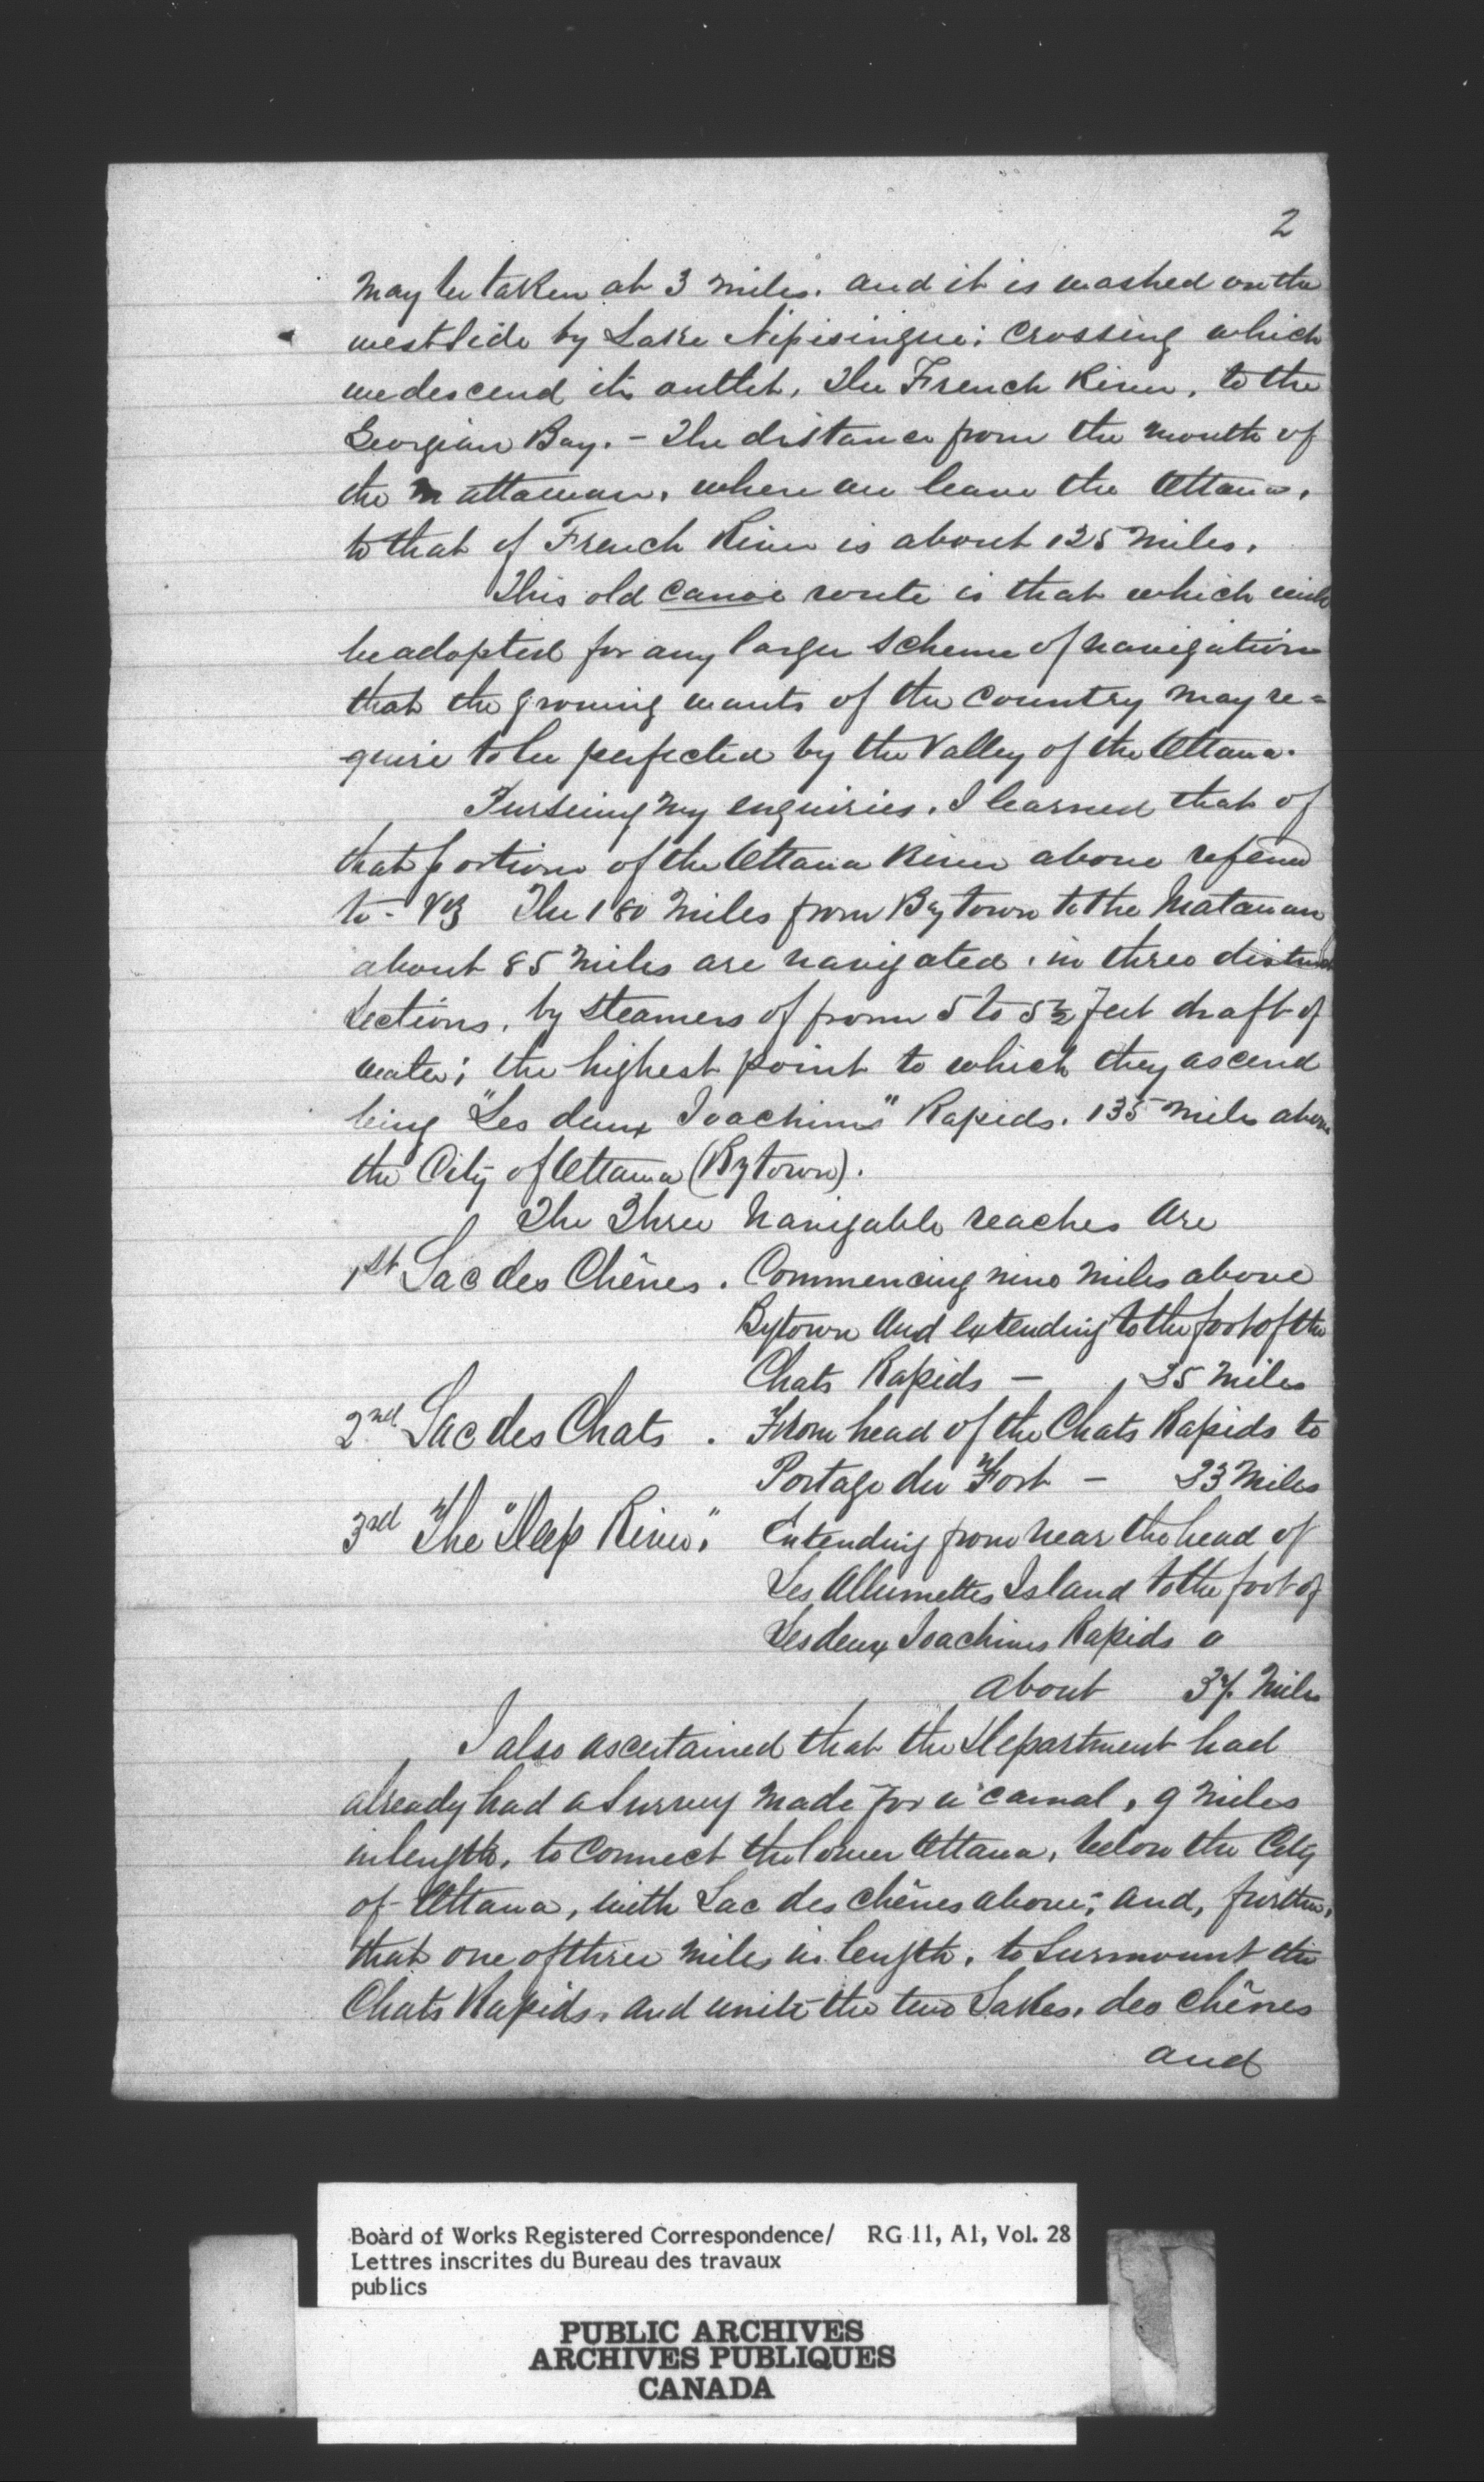 2
may be taken at 3 miles. and it is washed on the
west side by Lake Nipisingue; crossing which
we descend its outlet, the French River, to the
Georgian Bay. - The distance from the mouth of
the Mattawan, where we leave the Ottawa,
to that of French River is about 125 miles.
This old canoe route is that which will
be adopted for any larger scheme of navigation
that the growing wants of the Country may re=
quire to be perfected by the Valley of the Ottawa.
Pursuing my enquiries, I learned that of
that portion of the Ottawa River above referred
to - viz The 180 miles from Bytown to the Matawan
about 85 miles are navigated, in three distinct
sections, by steamers of from 5 to 5½ feet draft of
water; the highest point to which they ascend
being "Les deux Joachims" Rapids. 135 miles above
the City of Ottawa (Bytown).
The Three navigable reaches are
1st Lac des Chênes. Commencing nine miles above
Bytown and extending to the foot of the
Chats Rapids - 25 miles
2nd Lac des Chats. From head of the Chats Rapids to
Portage du Fort - 23 Miles
3rd The "Deep River." Extending from near the head of
Les Allumettes Island to the foot of
Les deux Joachims Rapids a
about 37 Miles
I also ascertained that the Department had
already had a survey made for a canal, 9 miles
in length, to connect the lower Ottawa, below the City
of Ottawa, with Lac des chênes above; and, further,
that one of three miles in length, to surmount the
Chats Rapids, and unite the two Lakes, des chênes
and
Board of Works Registered Correspondence/ RG 11, A1, Vol. 28
Lettres inscrites du Bureau des travaux
publics
PUBLIC ARCHIVES
ARCHIVES PUBLIQUES
CANADA